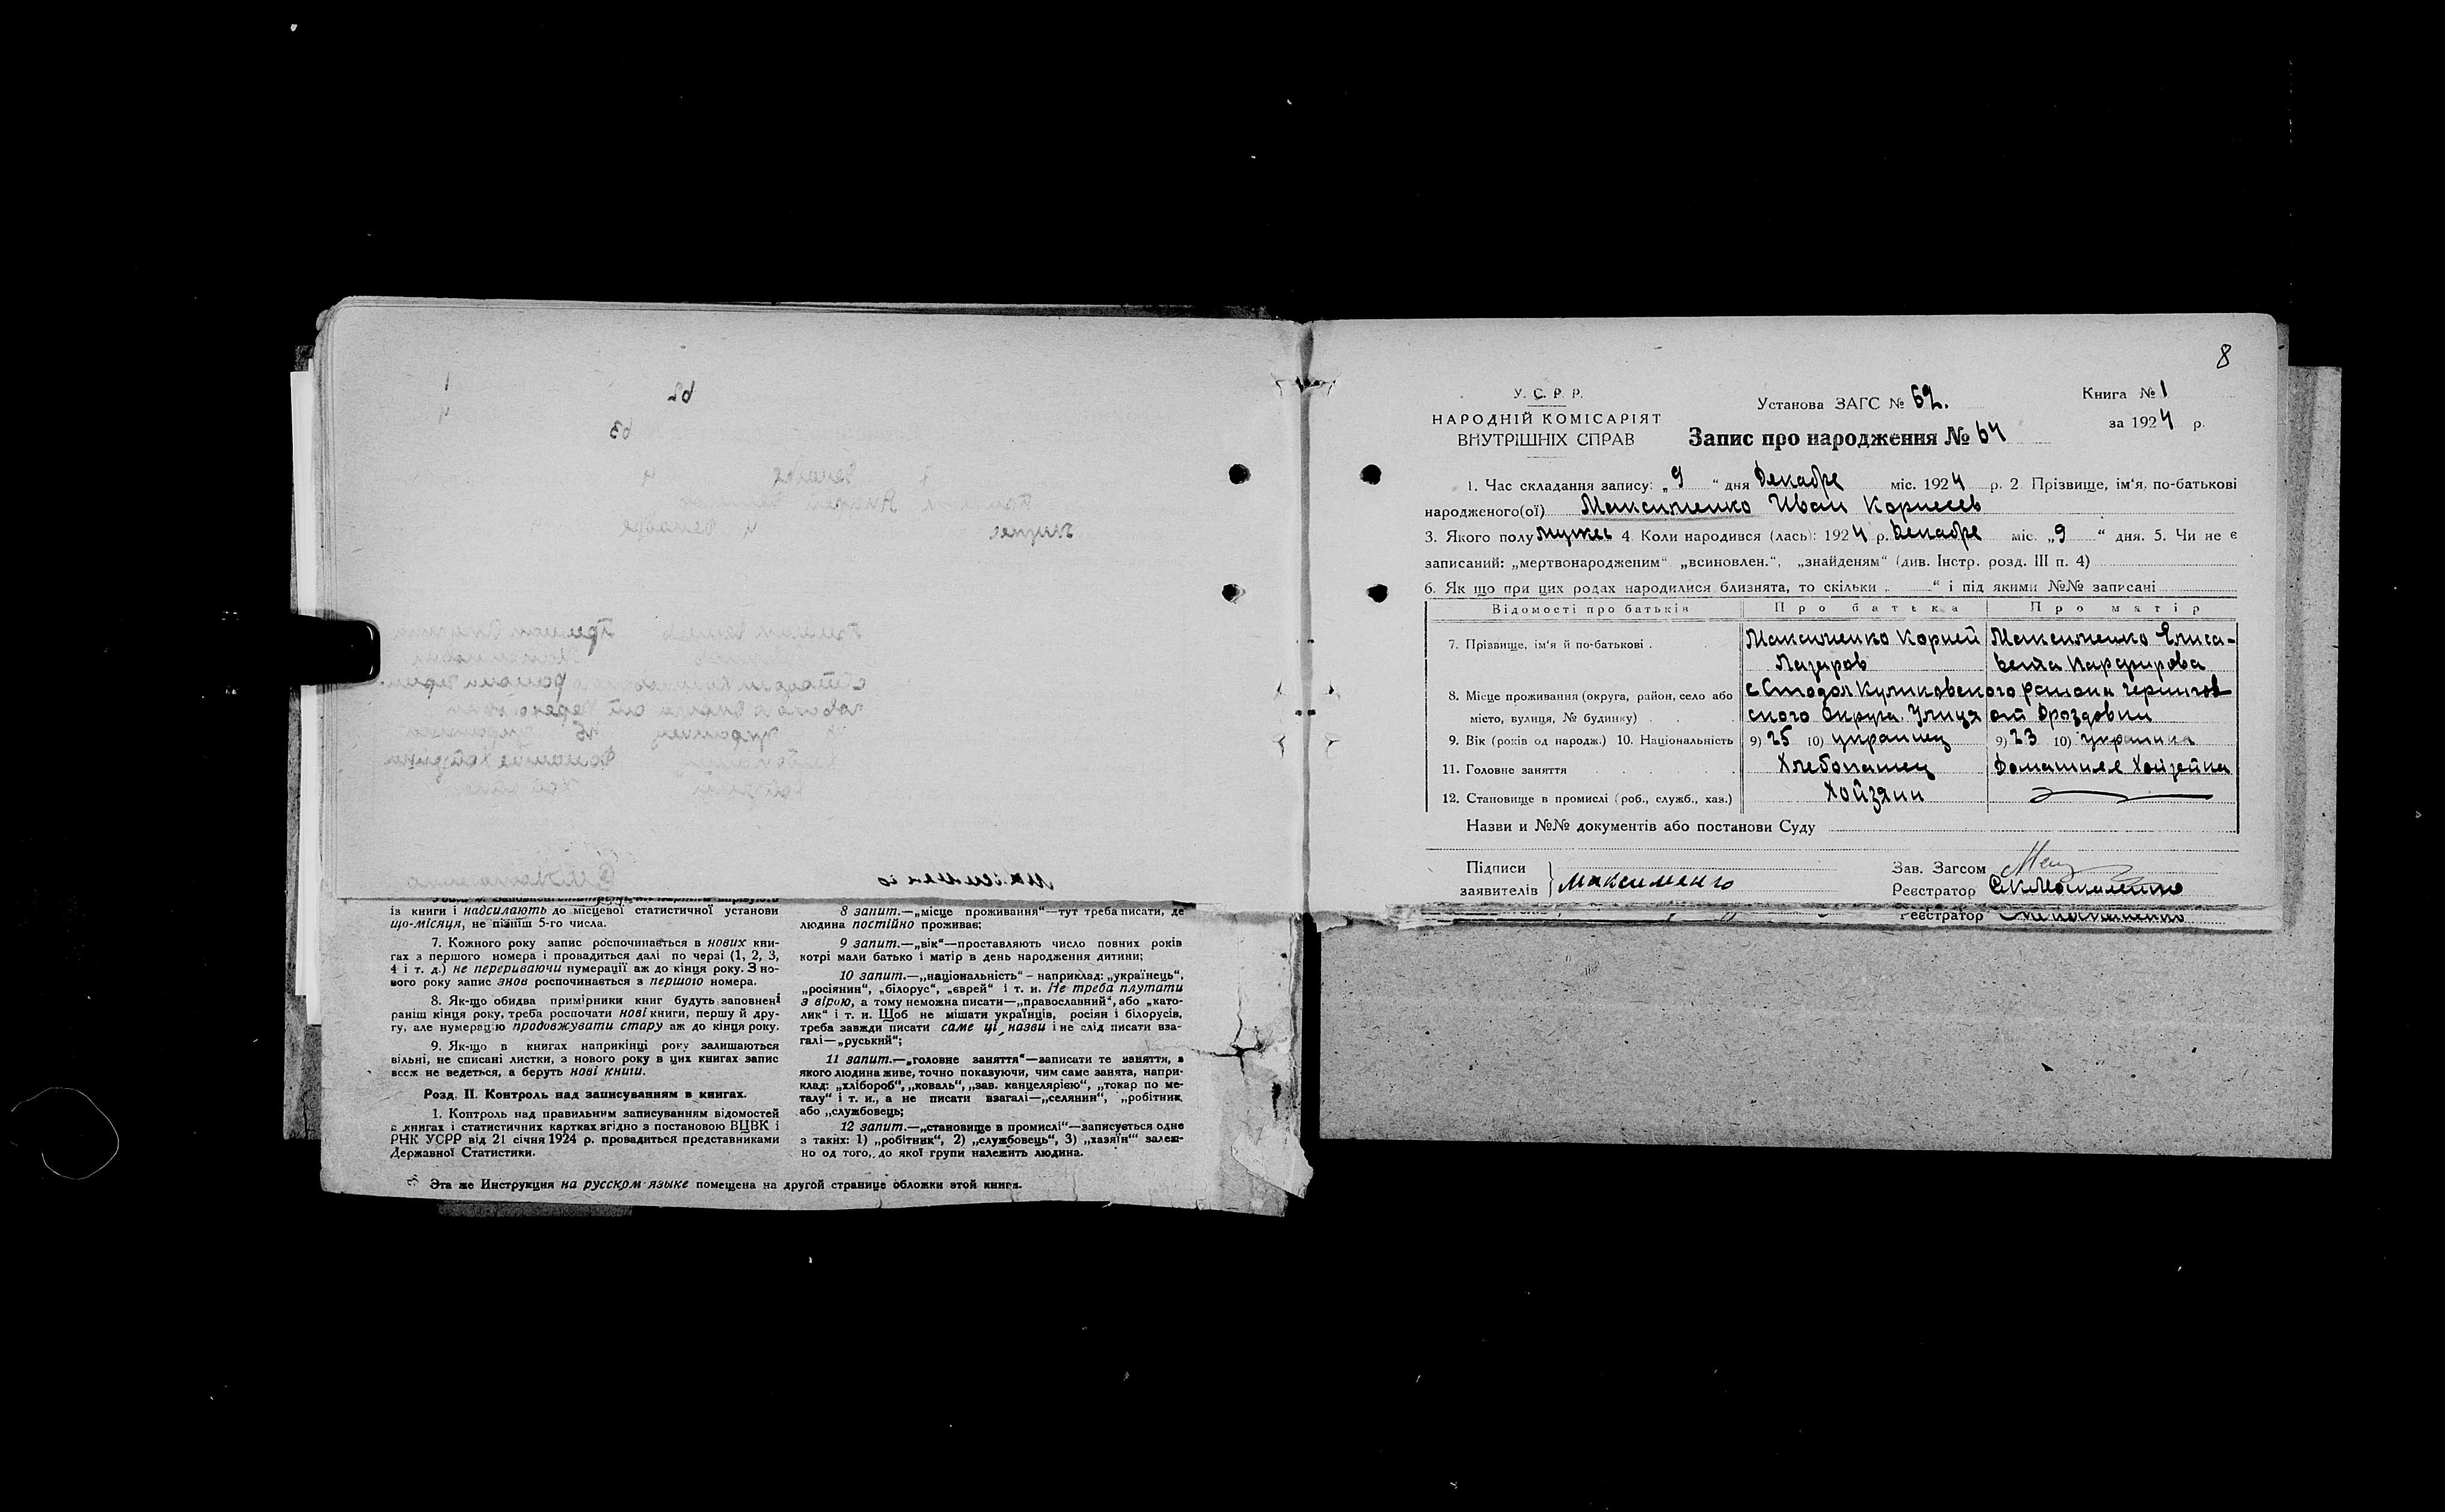 із книги і надсилають до місцевої статистичної установи
що-місяця, не пізніш 5-го числа.
7. Кожного року запис розпочинається в нових кни-
гах з першого номера і провадиться далі по черзі (1, 2, 3,
4 і т. д.) не перериваючи нумерації аж до кінця року. З но-
вого року запис знов розпочинається з першого номера.
8. Як-що обидва примірники книг будуть заповнені
раніш кінця року, треба розпочати нові книги, першу й дру-
гу, але нумерацію продовжувати стару аж до кінця року.
9. Як-що в книгах наприкінці року залишаються
вільні, не списані листки, з нового року в цих книгах запис
всеж не ведеться, а беруть нові книги.
Розд. II. Контроль над записуванням в книгах.
1. Контроль над правильним записуванням відомостей
в книгах і статистичних картках згідно з постановою ВЦВК і
РНК УСРР від 21 січня 1924 р. провадиться представниками
Державної Статистики.
8 запит.—„місце проживання“—тут треба писати, де
людина постійно проживає;
9 запит.—„вік“—проставляють число повних років
котрі мали батько і матір в день народження дитини;
10 запит.—„національність“ – наприклад: „українець“,
„росіянин“, „білорус“, „єврей“ і т. и. Не треба плутати
з вірою, а тому неможна писати—„православний“, або „като-
лик“ і т. и. Щоб не мішати українців, росіян і білорусів,
треба завжди писати саме ці назви і не слід писати вза-
галі—„руський“;
11 запит.—„головне заняття“—записати те заняття, з
якого людина живе, точно показуючи, чим саме занята, напри-
клад: „хлібороб“, „коваль“, „зав. канцелярією“, „токар по ме-
талу“ і т. и., а не писати взагалі—„селянин“, „робітник
або „службовець;
12 запит.—„становище в промислі“—записується одне
з таких: 1) „робітник“, 2) „службовець“, 3) „хазяїн“ залеж-
но од того, до якої групи належить людина.
Эта же Инструкция на русском языке помещена на другой странице обложки этой книги.
8
У. С. Р. Р.
НАРОДНІЙ КОМІСАРІЯТ
ВНУТРІШНІХ СПРАВ
Установа ЗАГС № 62.
Запис про народження № 64
Книга № 1
за 1924 р.
1. Час складання запису: „9“ дня Декабре міс. 1924 р. 2 Прізвище, ім‘я, по-батькові
народженого(ої) Максименко Иван Корнеев
3. Якого полу мужес 4. Коли народився (лась): 1924 р. Декабре міс. „9“ дня. 5. Чи не є
записаний: „мертвонародженим“ „всиновлен.“, „знайденям“ (див. Інстр. розд. III п. 4)
6. Як що при цих родах народилися близнята, то скільки „ “ і під якими №№ записані
Відомості про батьків Про батька Про матір
7. Прізвище, ім‘я й по-батькові . Максименко Корней Максименко Елиса-
Лазаров вета Парфирова
8. Місце проживання (округа, район, село або с Стодол Куликовского района Чернигов
місто, вулиця, № будинку) ского Округа. Улиця от Дроздовки
9. Вік (років од народж.) 10. Національність 9) 25 10) украинец 9) 23 10) украинка
11. Головне заняття Хлебопашец Домашняя Хойзейка
12. Становище в промислі (роб., служб., хаз.) Хойзяин
Назви и №№ документів або постанови Суду
Підписи
заявителів } Максименко
Зав. Загсом
Реєстратор
Реєстратор